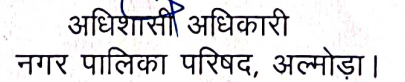 अधिशासी अधिकारी
नगर पालिका परिषद, अल्मोड़ा।